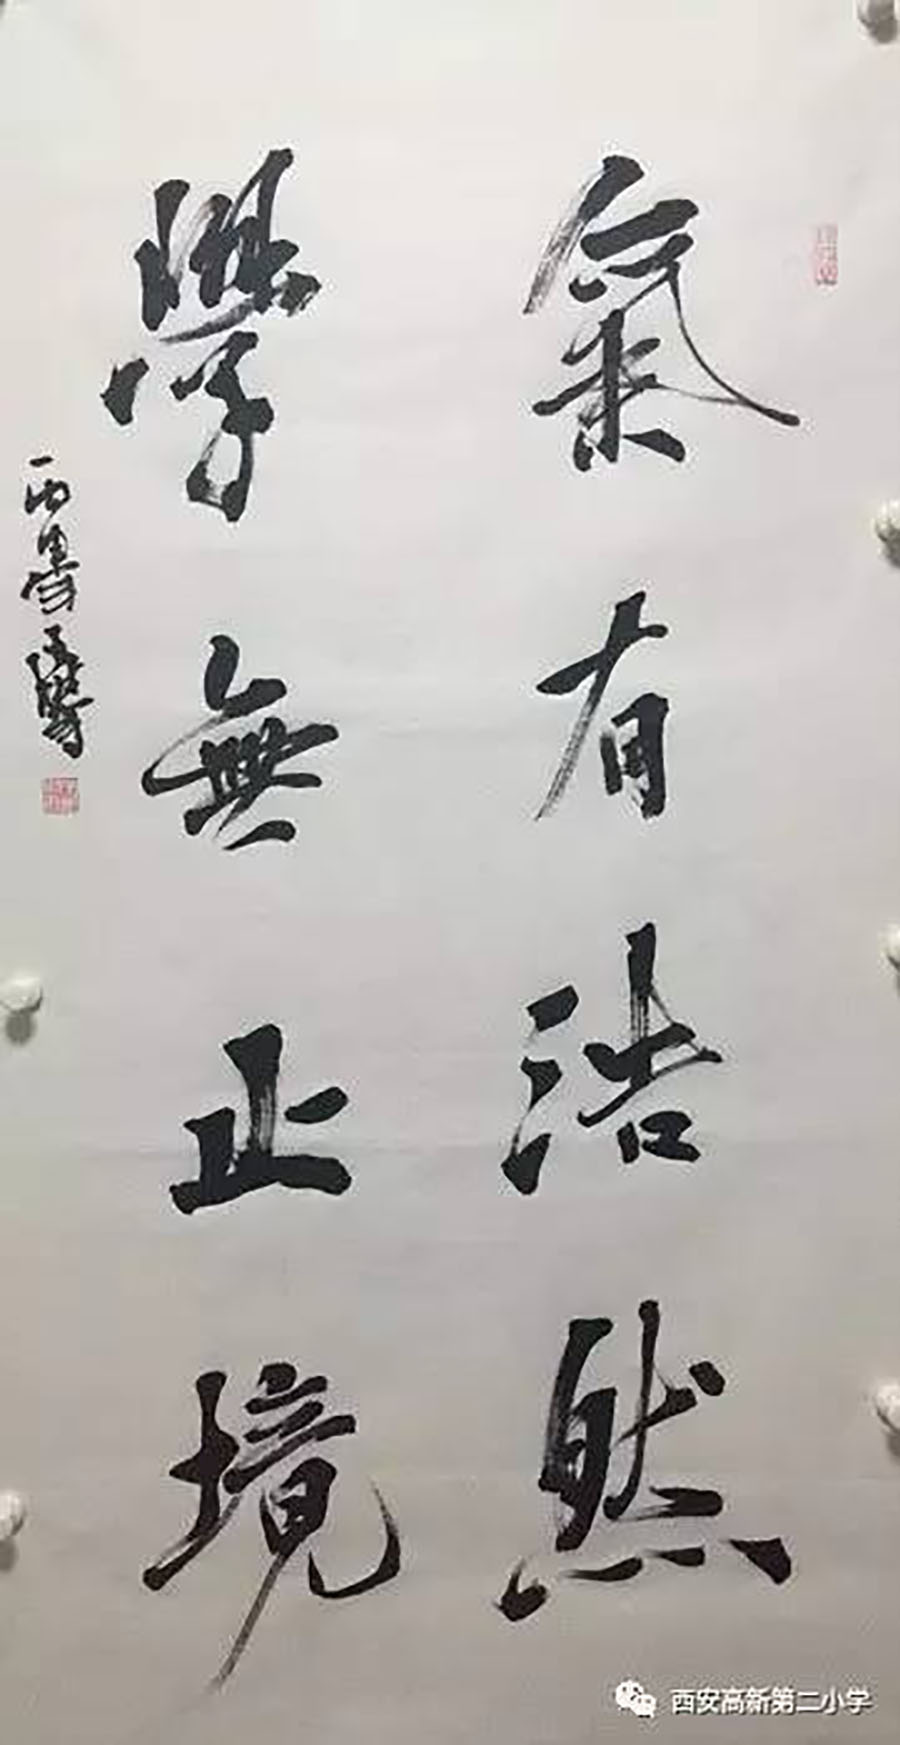 氣有浩然
學無止境
西安高新第二小学